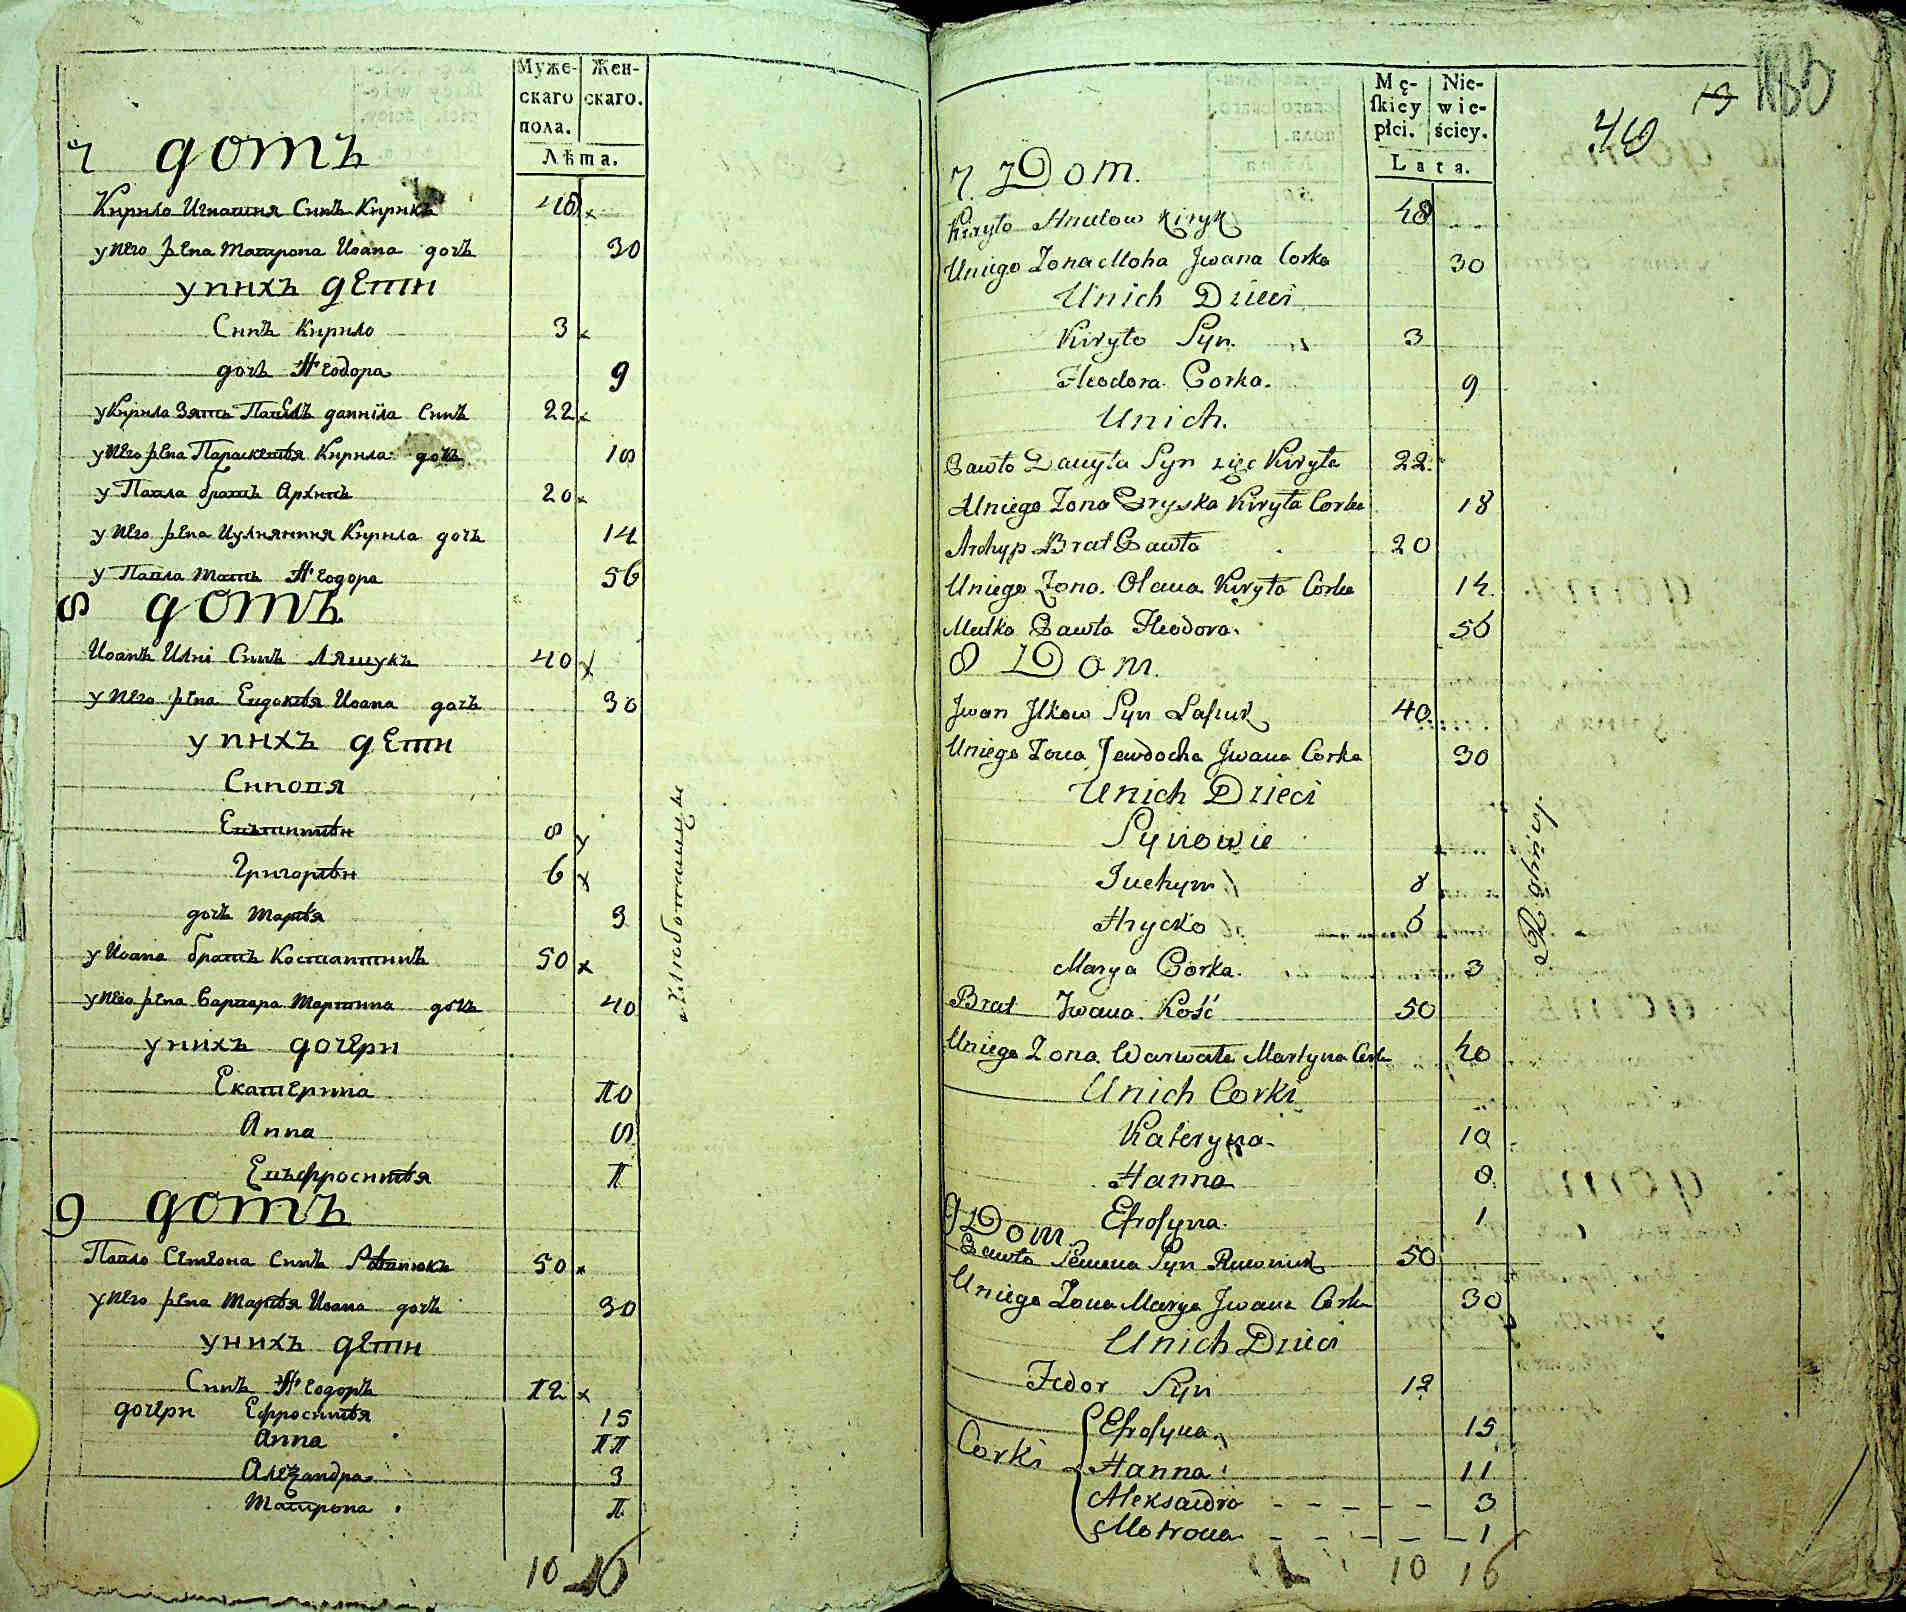 Муже-
скаго
пола.
Жен-
скаго.
Лѣта.
7 домъ
Кирило Игнатия Синъ Кирикъ 48
у него жена Матрона Иоана дочь 30
у нихъ дети
Синъ Кирило 3
дочь Феодора 9
у Кирила Зять Павелъ даниила Синъ 22
у него жена Параскевѣя Кирила дочь 18
у Павла братъ Архипъ 20
у него жена Иулиянния Кирила дочь 14
у Павла Мать Феодора 56
8 домъ
Иоанъ Илиі Синъ Ляшукъ 40
у него жена Евдокѣя Иоана дочь 30
у нихъ дети
Синовя
Евътимѣи 8
Григорѣи 6
дочь Марѣя 3
у Иоана братъ Костантинъ 50
у него жена Варвара Мартина дочь 40
у нихъ дочери
Екатерина 10
Анна 8
Евъфросинѣя 1
9 домъ
Павло Семена Синъ 50
у него жена Марѣя Иоана дочь 30
у нихъ дети
Синъ Феодоръ 12
дочери Ефросинѣя 15
Анна 11
Алеξандра 3
Матрона 1
10 16
Mę-
skiey
płci.
Nie-
wie-
ściey.
Lata.
13
46
7. Dom.
Kiryło Kiryk 48
Uniego Zona Moha Jwana Corka 30
Unich Dzieci
Kiryło Syn. 3
Fleodora Corka. 9
Unich.
Pawło Danyła Syn zięc Kiryła 22
Uniego Zona Pryska Kiryła Corka 18
Archyp Brat Pawła 20
Uniego Zona. Olana Kiryła Corka 14
Matka Pawła Fleodora. 56
8 Dom.
Jwan Jlkow Syn Laszuk 40
Uniego Zona Jewdocha Jwana Corka 30
Unich Dzieci
Synowie
Juchym 8
Hrycko 6
Marya Corka. 3
Brat Jwana Kość 50
Uniego Zona Warwara Martyna Corka 40
Unich Corki
Kateryna 10
Hanna 8
Efrosyna 1
9 Dom.
Pawło Semena Syn 50
Uniego Zona Marya Jwana Corka 30
Unich Dzieci
Fedor Syn 12
Corki
Efrosyna 15
Hanna 11
Aleksandra 3
Motrona 1
10 16